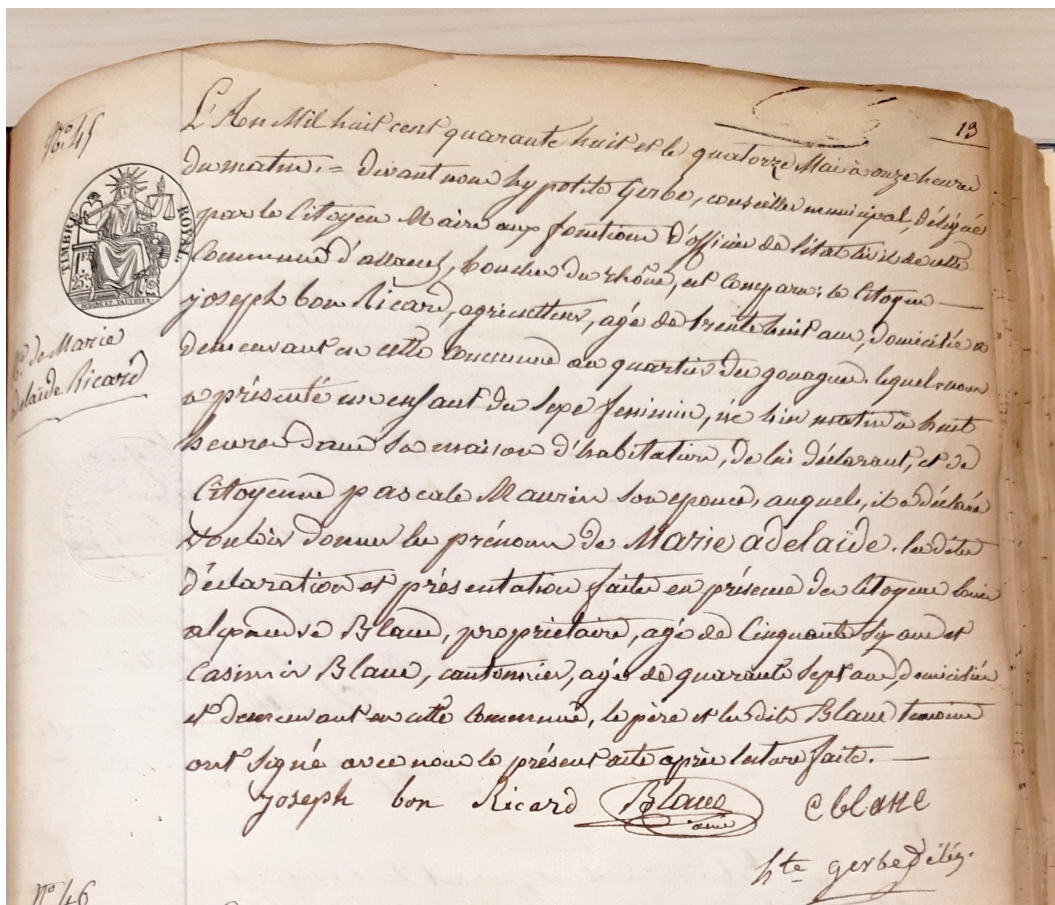 13
N° 45
L'An Mil huit cent quarante huit et le quatorze Mai à onze heures
du matin. = Devant nous hypolite Gerbe, conseiller municipal, délégué
par le Citoyen Maire aux fonctions d'officier de l'état civil de cette
Commune d'allauch, bouches du rhône, est comparu: le Citoyen
joseph bon Ricard, agriculteur, agé de trente huit ans, domicilié et
demeurant en cette Commune au quartier des gonagues. lequel nous
a présenté un enfant du sexe feminin, né hier matin à huit
heures dans sa maison d'habitation, de lui déclarant, et de
Citoyenne pascale Maurin son epouse, auquel, il a déclaré
Vouloir donner les prénoms de Marie adelaïde. les dites
déclaration et présentation faites en présence des Citoyens louis
Blanc, propriétaire, agé de Cinquante Six ans et
Casimir Blanc, cantonnier, agé de quarante Sept ans, domiciliés
et demeurant en cette Commune, le père et les dits Blanc temoins
ont signé avec nous le présent acte après lecture faite.
joseph bon Ricard Blanc ainé C blanc
hte gerbe délég.
TIMBRE ROYAL
1F 25c
de Marie
adelaïde Ricard
N° 46